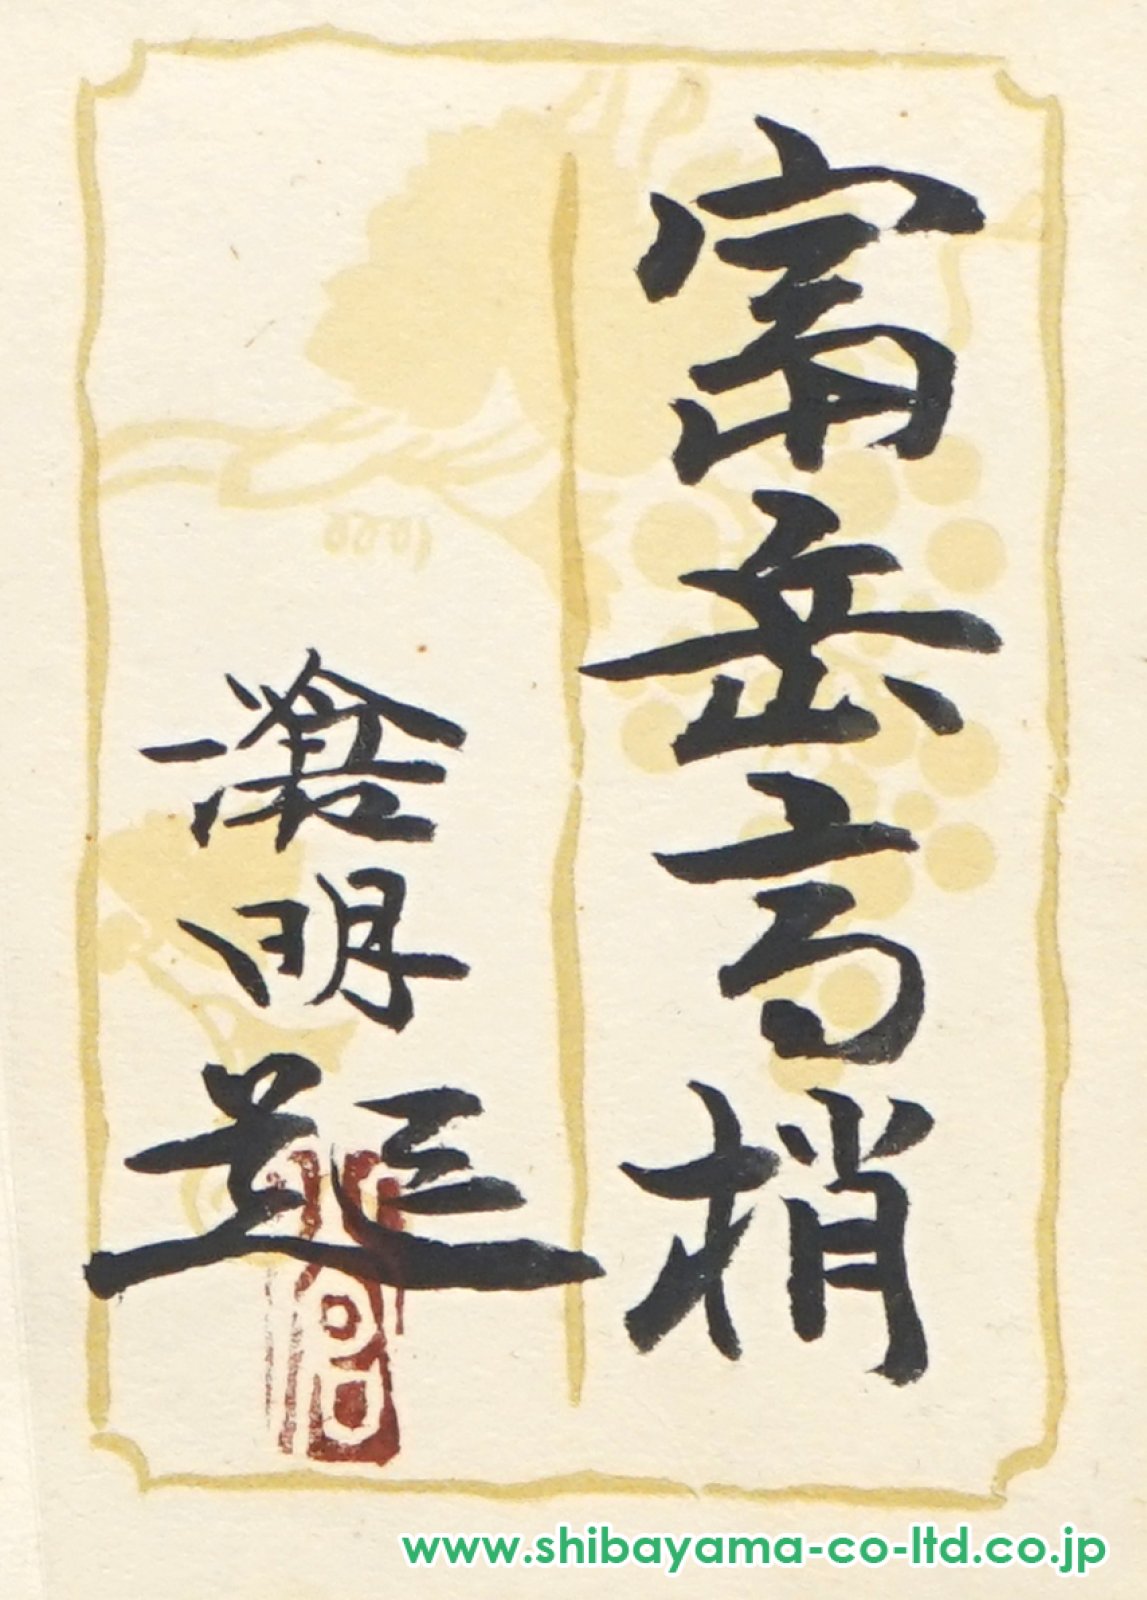 富岳高梢
明題
www.shibayama-co-ltd.co.jp